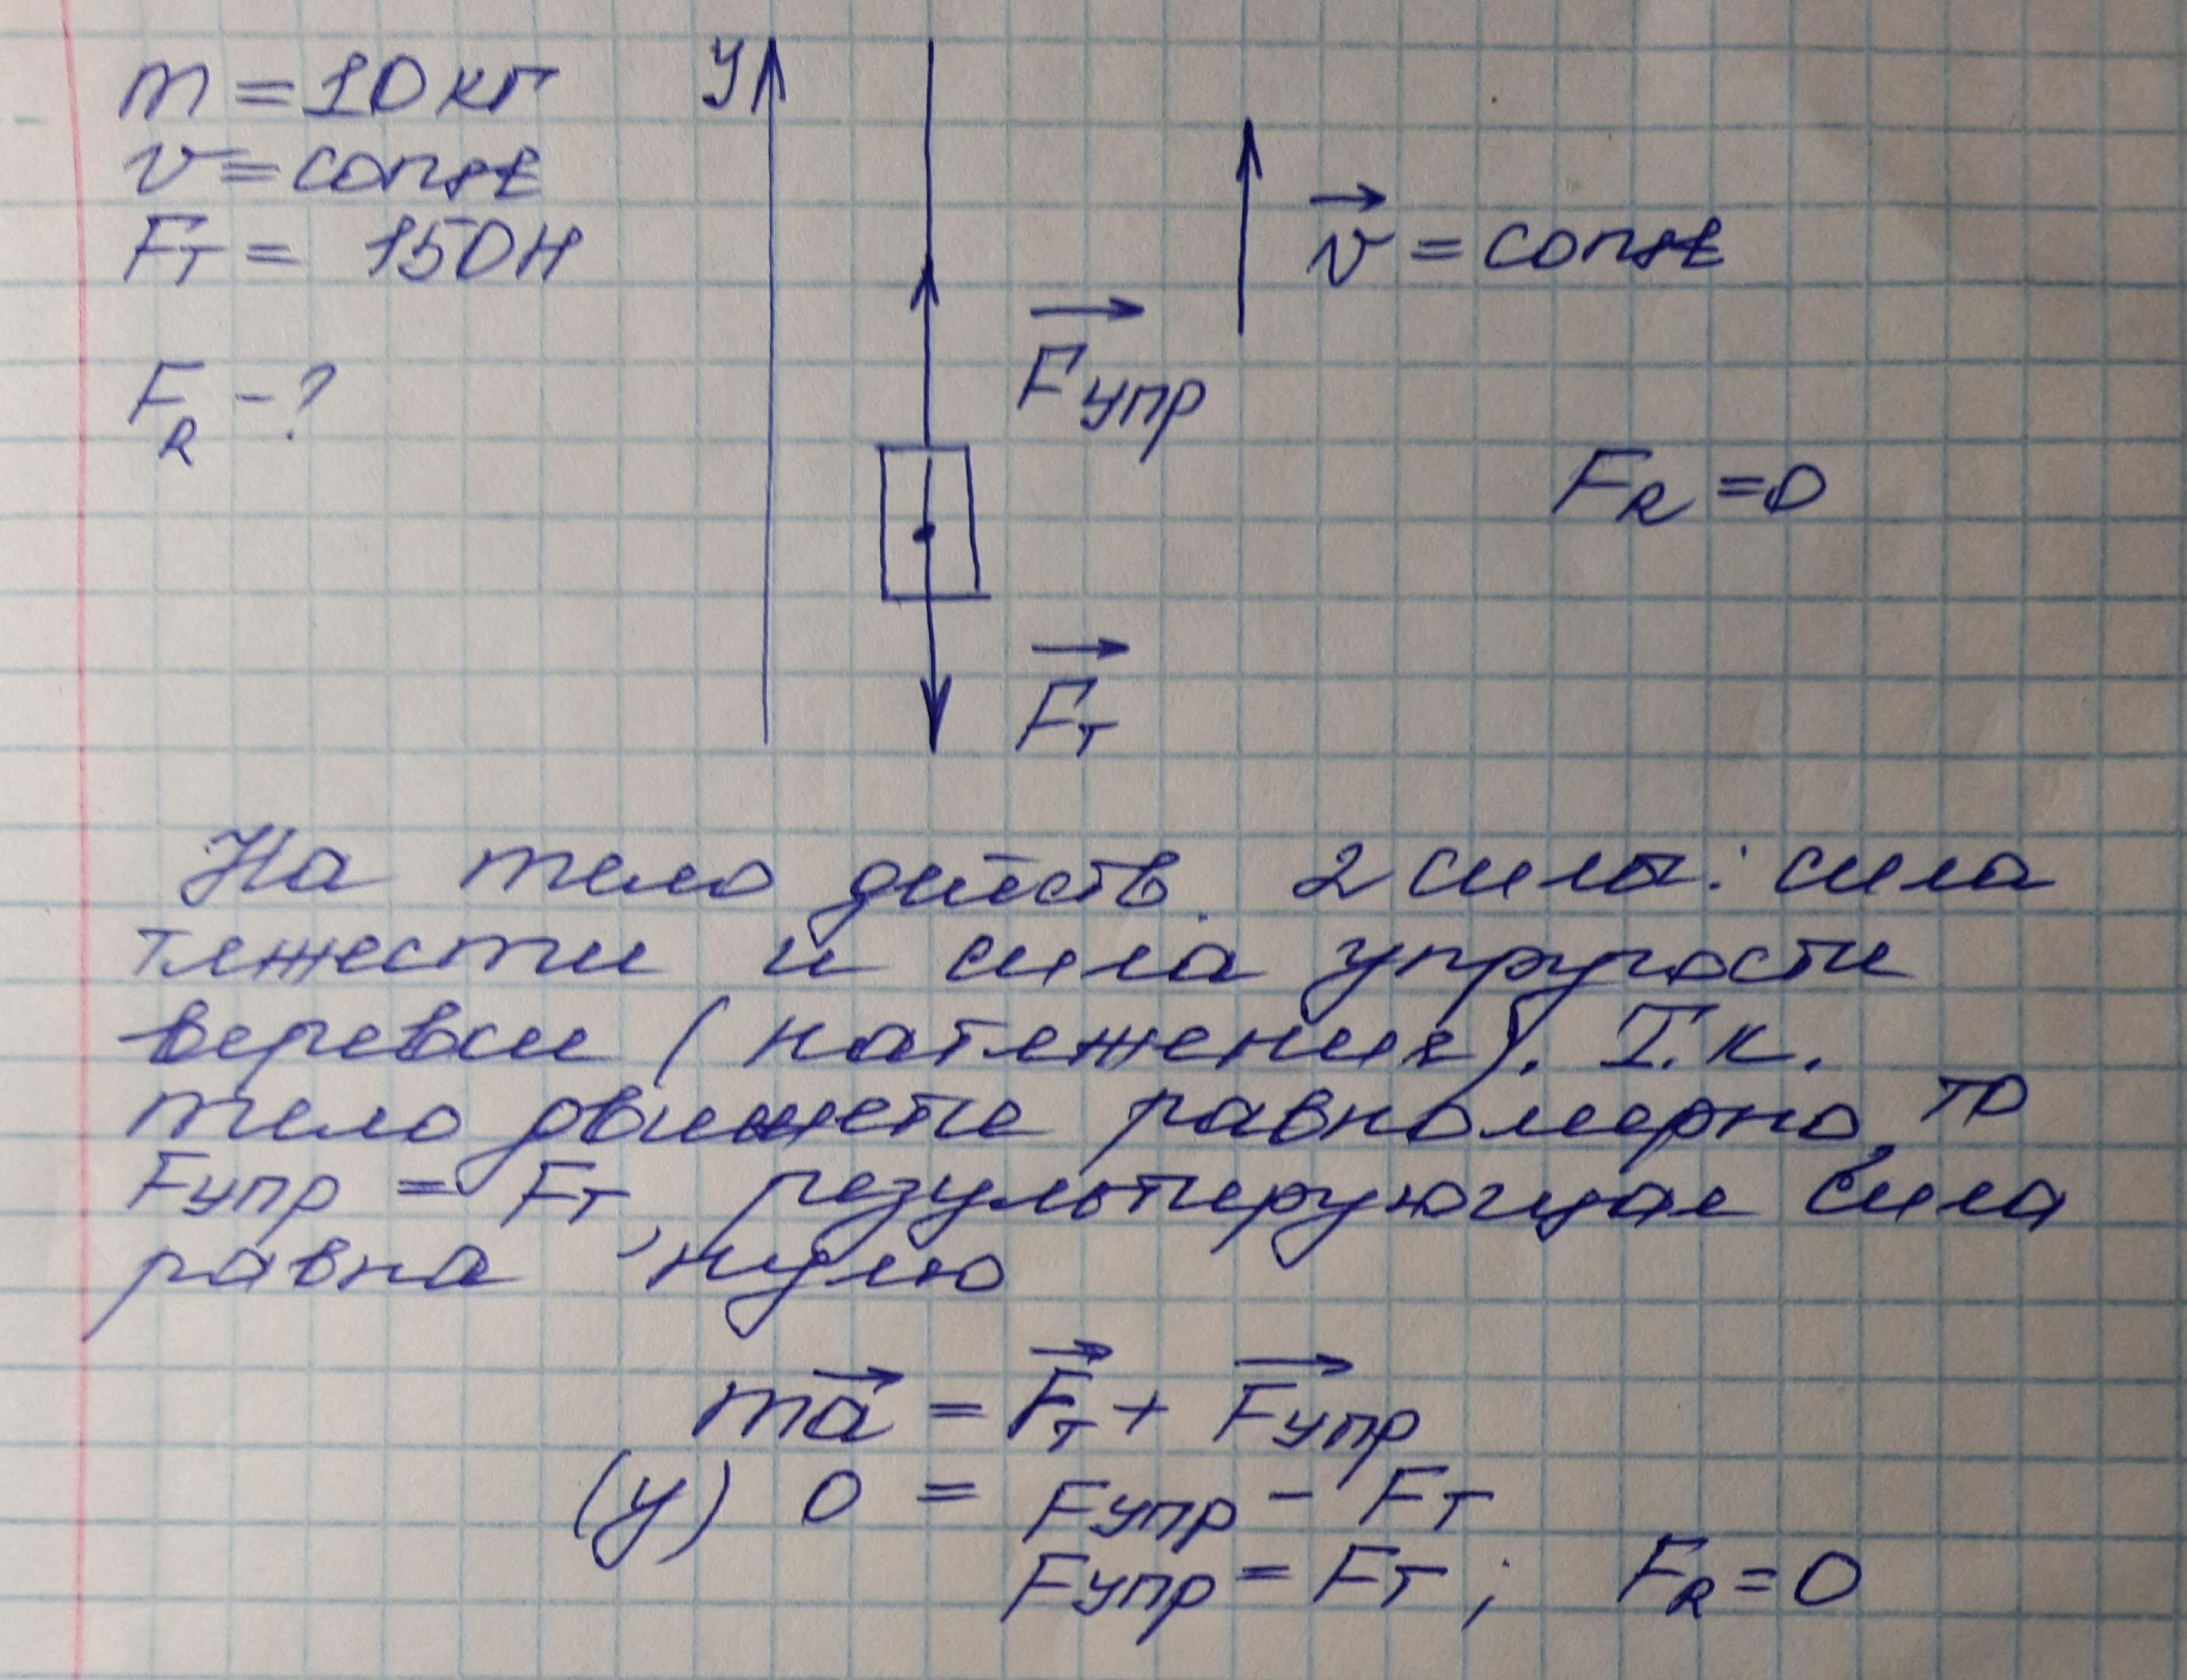 m = 10 кг
v = const
Fт = 150 Н
F_R - ?
y
F⃗упр
v⃗ = const
F_R = 0
F⃗т
На тело действ. 2 силы: сила
тяжести и сила упругости
веревки (натяжения). Т.к.
тело движется равномерно, то
Fупр = Fт, результирующая сила
равна нулю
ma⃗ = F⃗т + F⃗упр
(y) 0 = Fупр - Fт
Fупр = Fт ; F_R = 0